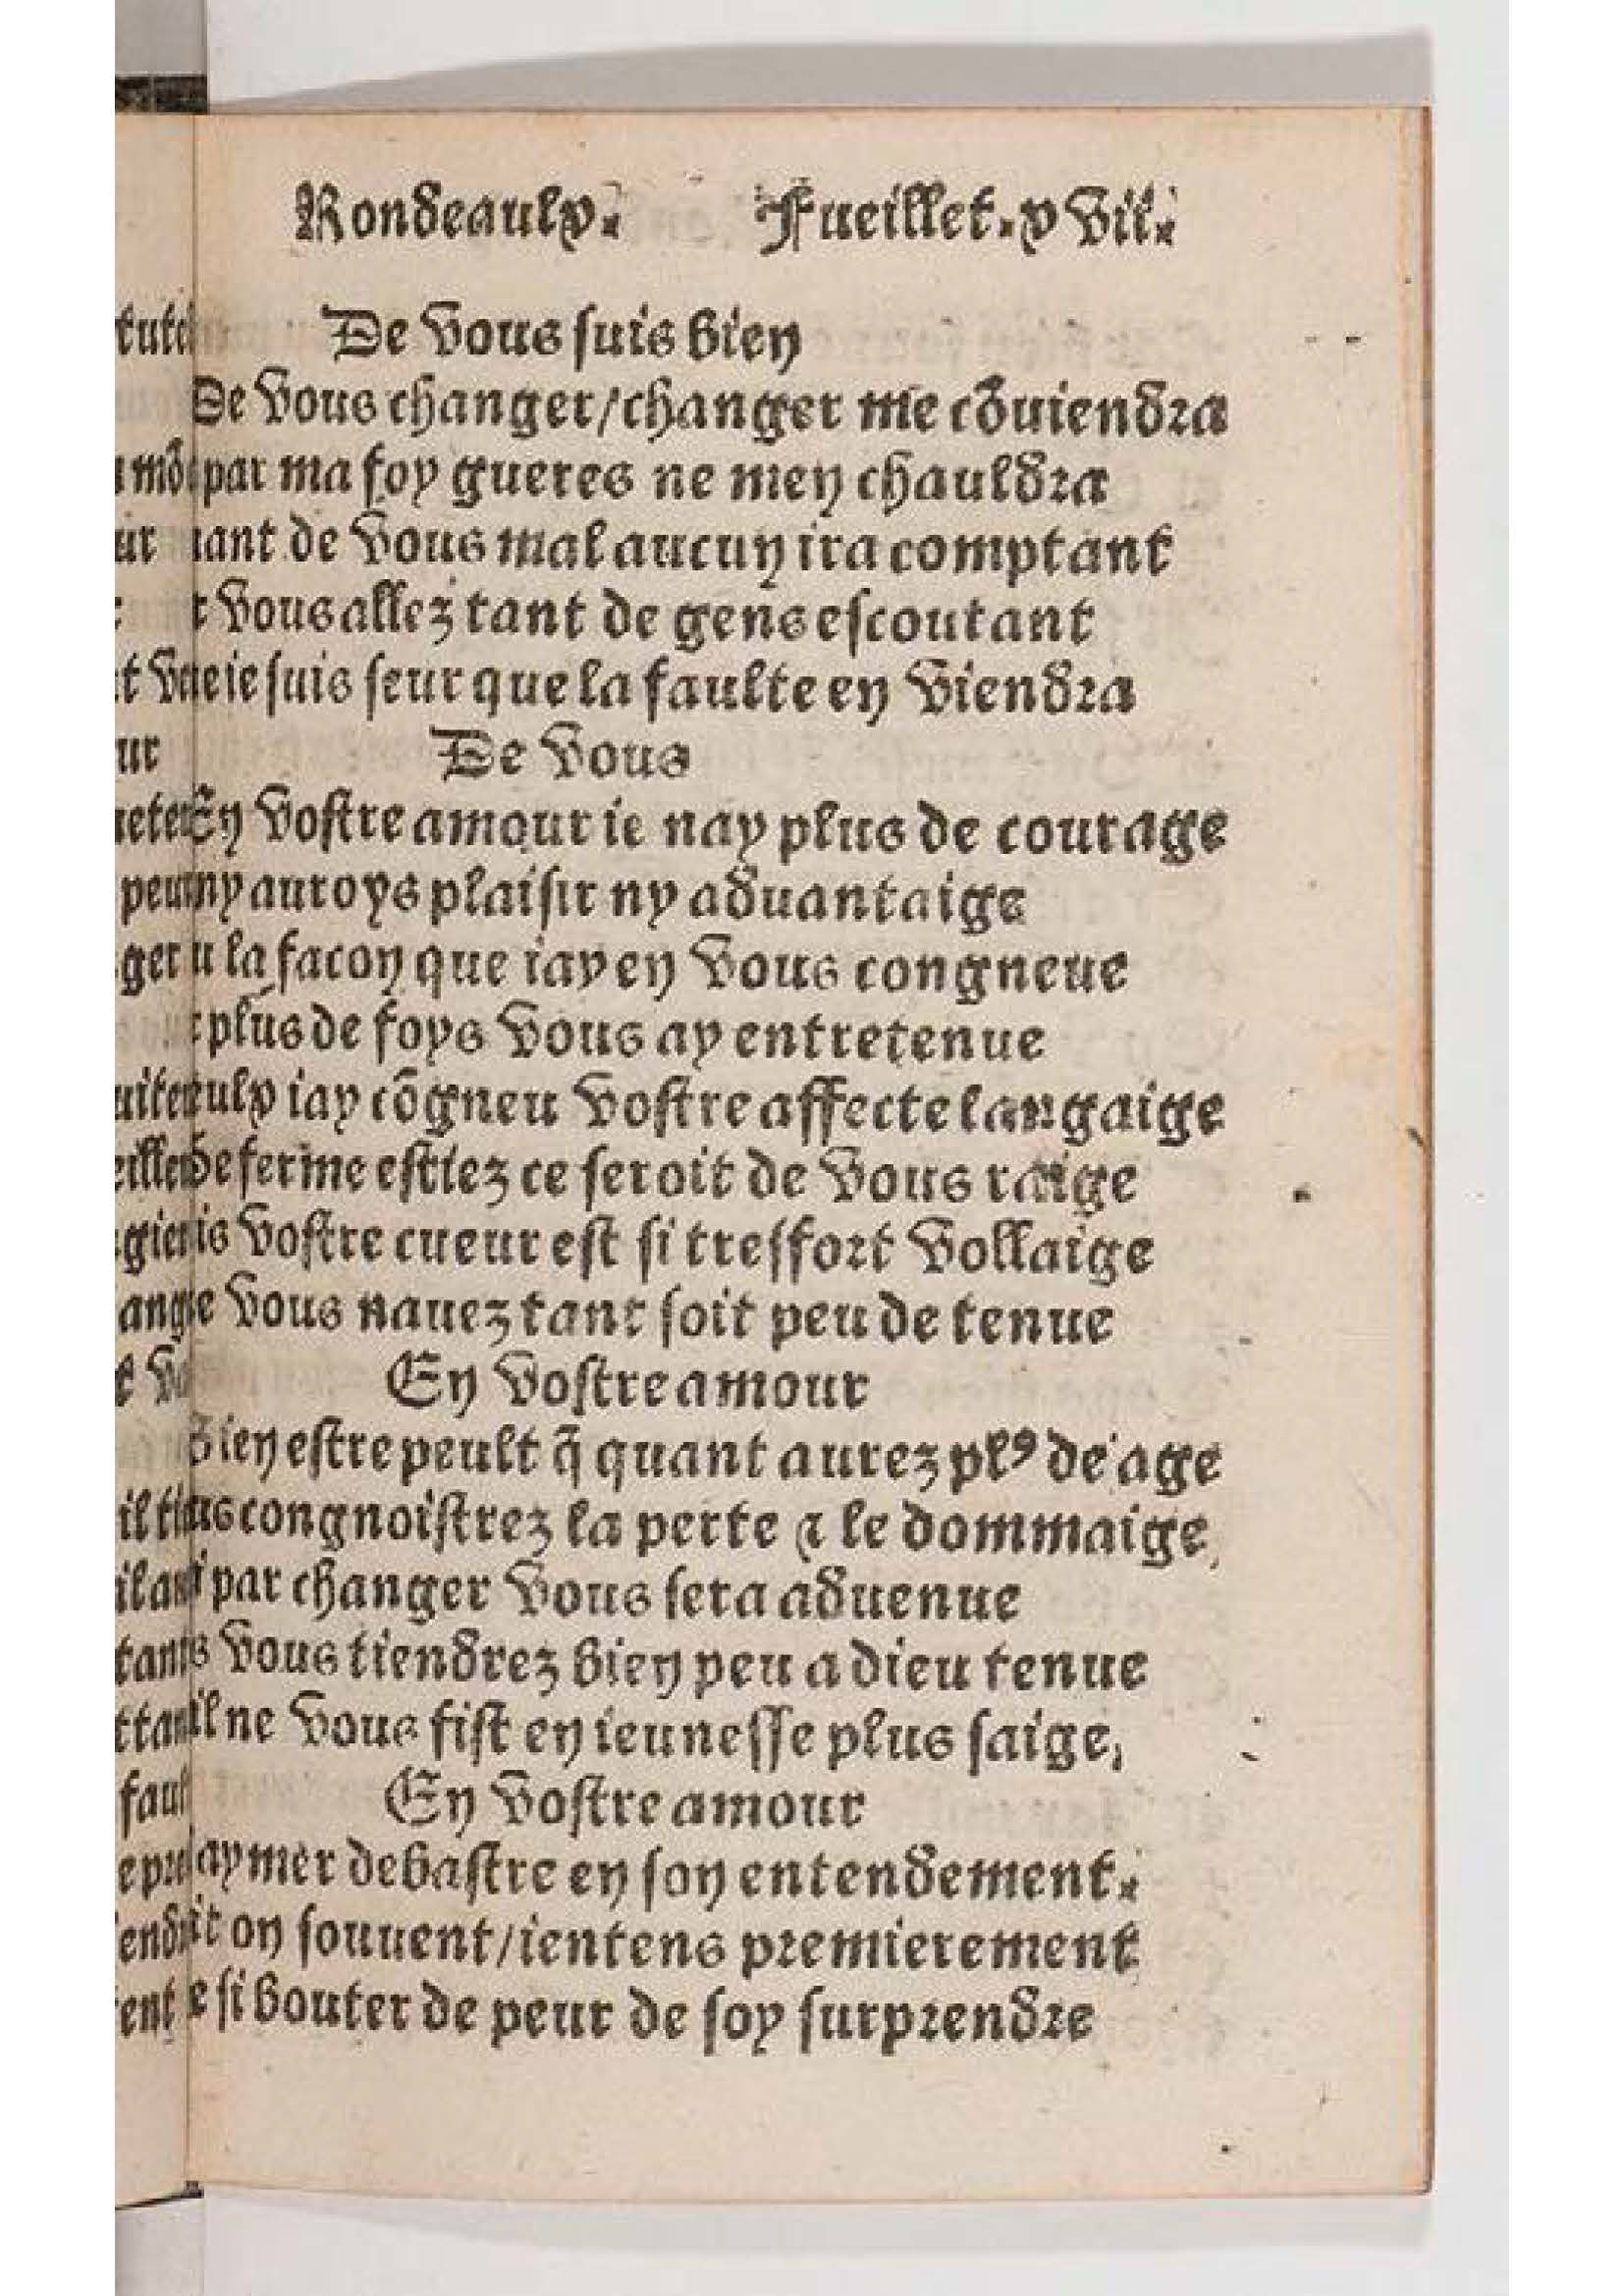 Rondeaulx. Fueillet. xvii.
De vous suis bien
De vous changer/changer me cōuiendra
par ma foy gueres ne men chauldra
de vous mal aucun ira comptant
vous allez tant de gens escoutant
ie suis seur que la faulte en viendra
De vous
En vostre amour ie nay plus de courage
ny auroys plaisir ny aduantaige
la facon que iay en vous congneue
plus de foys vous ay entretenue
iay cōgneu vostre affecte langaige
ferme estiez ce seroit de vous raige
vostre cueur est si tresfort vollaige
vous nauez tant soit peu de tenue
En vostre amour
Bien estre peult q̄ quant aurez plꝰ de age
congnoistrez la perte ⁊ le dommaige
par changer vous sera aduenue
vous tiendrez bien peu a dieu tenue
ne vous fist en ieunesse plus saige,
En vostre amour
aymer debastre en son entendement.
on souuent/ientens premierement
si bouter de peur de soy surprendre